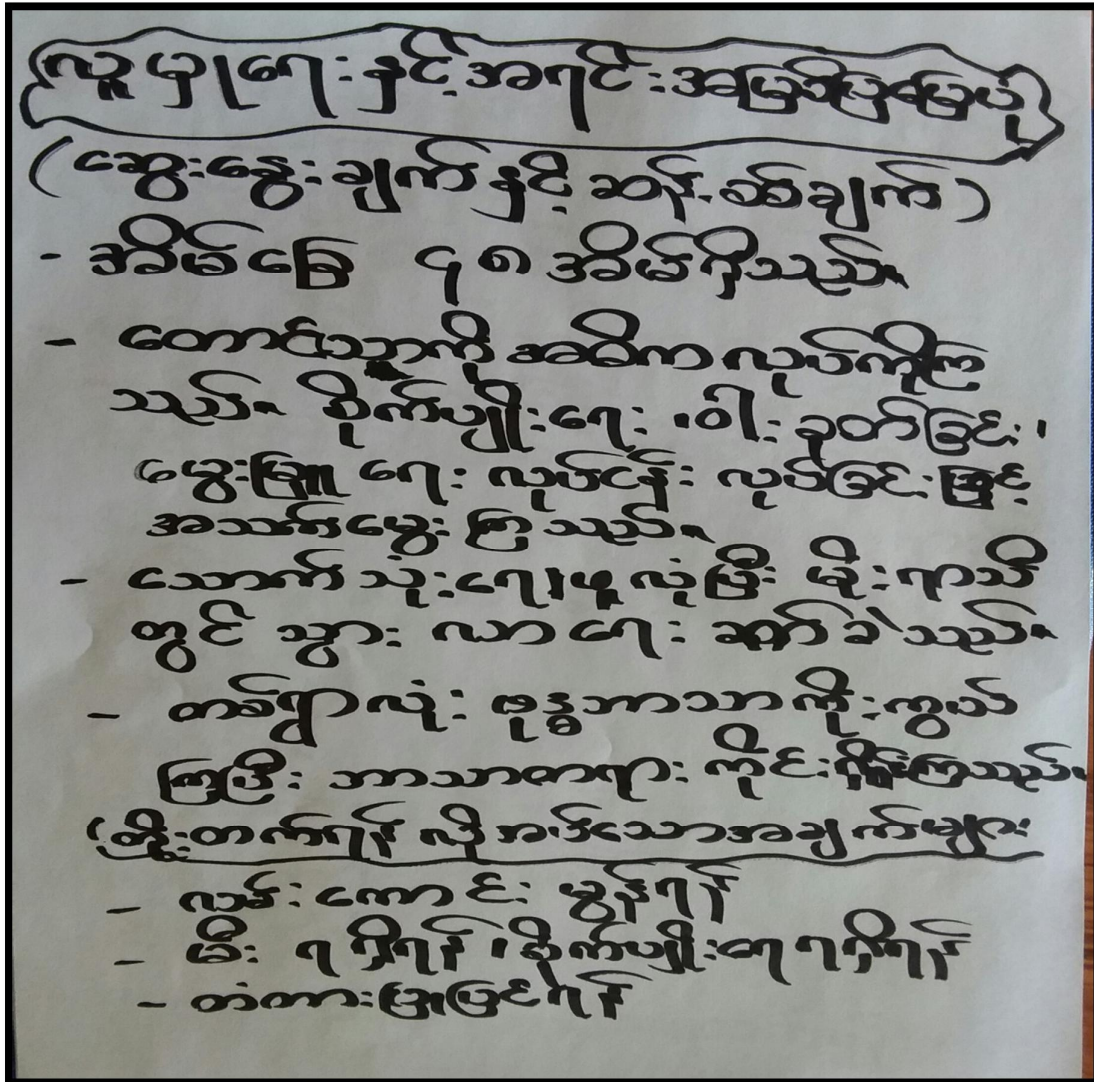 လူမှုရေးနှင့်အရင်းအမြစ်ပြမြေပုံ
(ဆွေးနွေးချက်နှင့် ဆန်းစစ်ချက်)
- အိမ်ခြေ ၄၈ အိမ်ရှိသည်။
- တောင်သူကို အဓိက လုပ်ကိုင်ကြ
သည်။ စိုက်ပျိုးရေး ၊ ဝါးခုတ်ခြင်း ၊
မွေးမြူရေး လုပ်ငန်း လုပ်ခြင်းဖြင့်
အသက်မွေး ကြသည်။
- သောက်သုံးရေဖူလုံပြီး မိုးရာသီ
တွင် သွားလာရေး ခက်ခဲသည်။
- တစ်ရွာလုံး ဗုဒ္ဓဘာသာကိုးကွယ်
ကြပြီး ဘာသာတရား ကိုင်းရှိုင်းကြသည်။
(ဖွံ့ဖြိုးတက်ရန် လိုအပ်သောအချက်များ
- လမ်းကောင်း မွန်ရန်
- မီး ရရှိရန် ၊ စိုက်ပျိုးရေရရှိရန်
- တံတားပြုပြင်ရန်